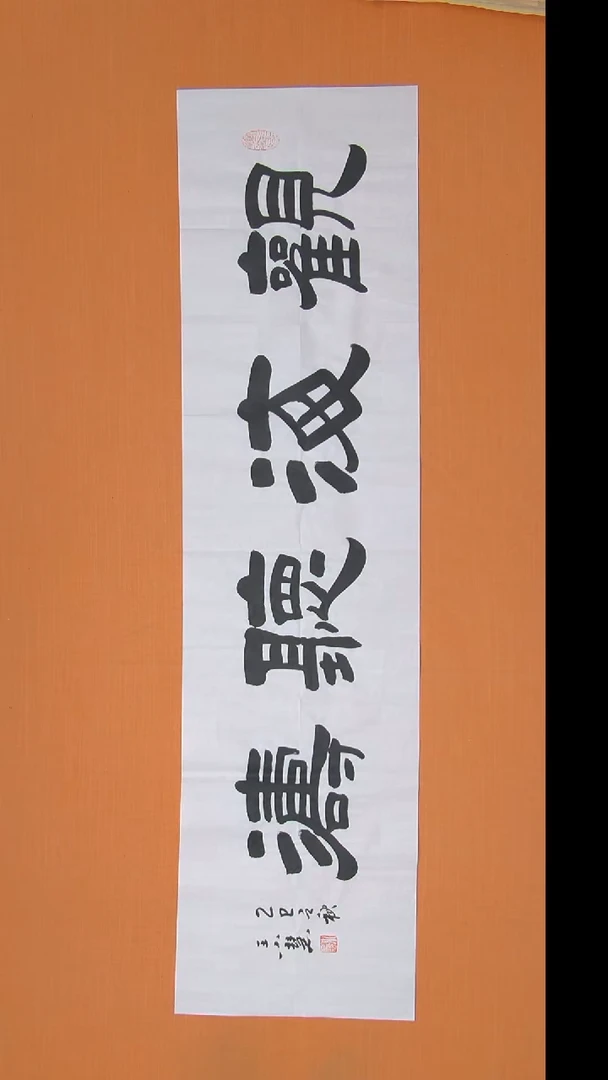 觀海聽濤
乙巳之秋